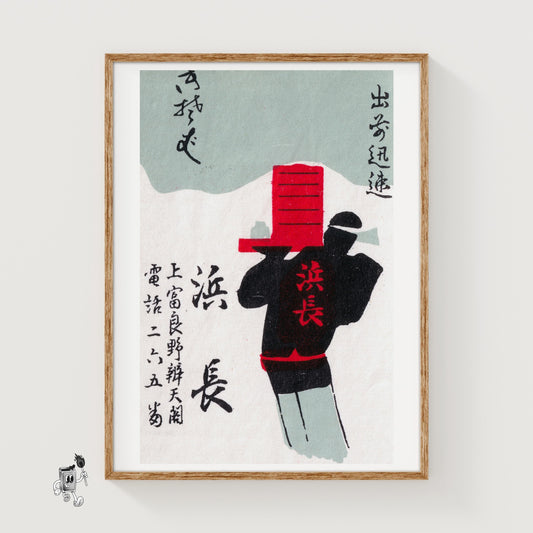 出前迅速
浜長
浜長
上富良野辨天
電話二六五番